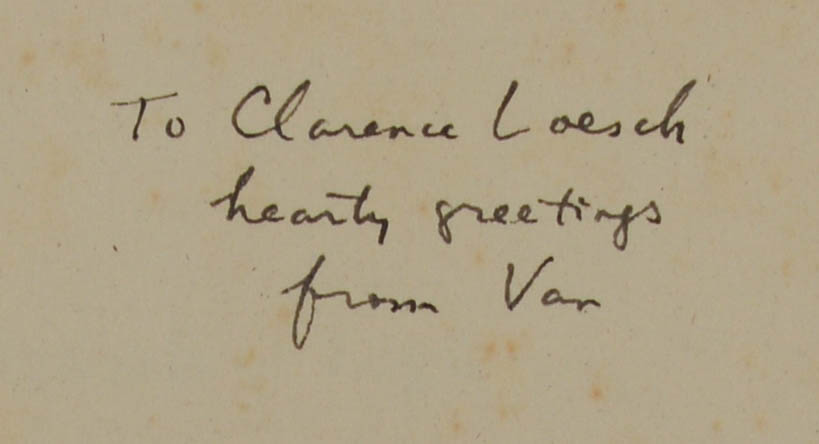 To Clarence Loesch
hearty greetings
from Van